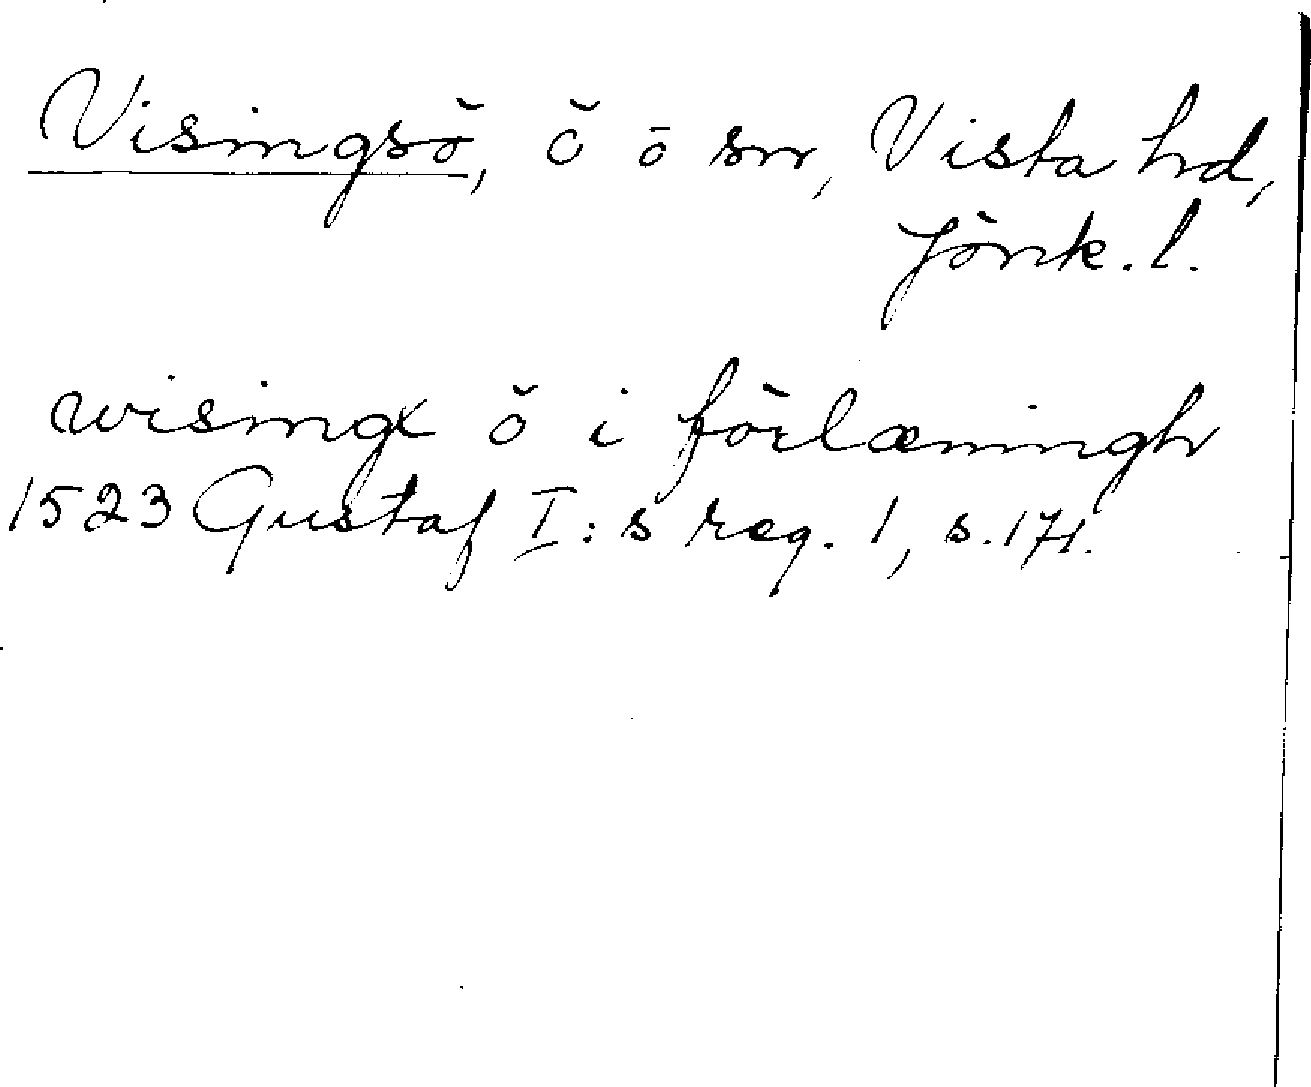 Visingsö, ö o sn, Vista hd,
Jönk. l.
wisingx ö i förlæningh
1523 Gustaf I:s reg. 1, s. 171.